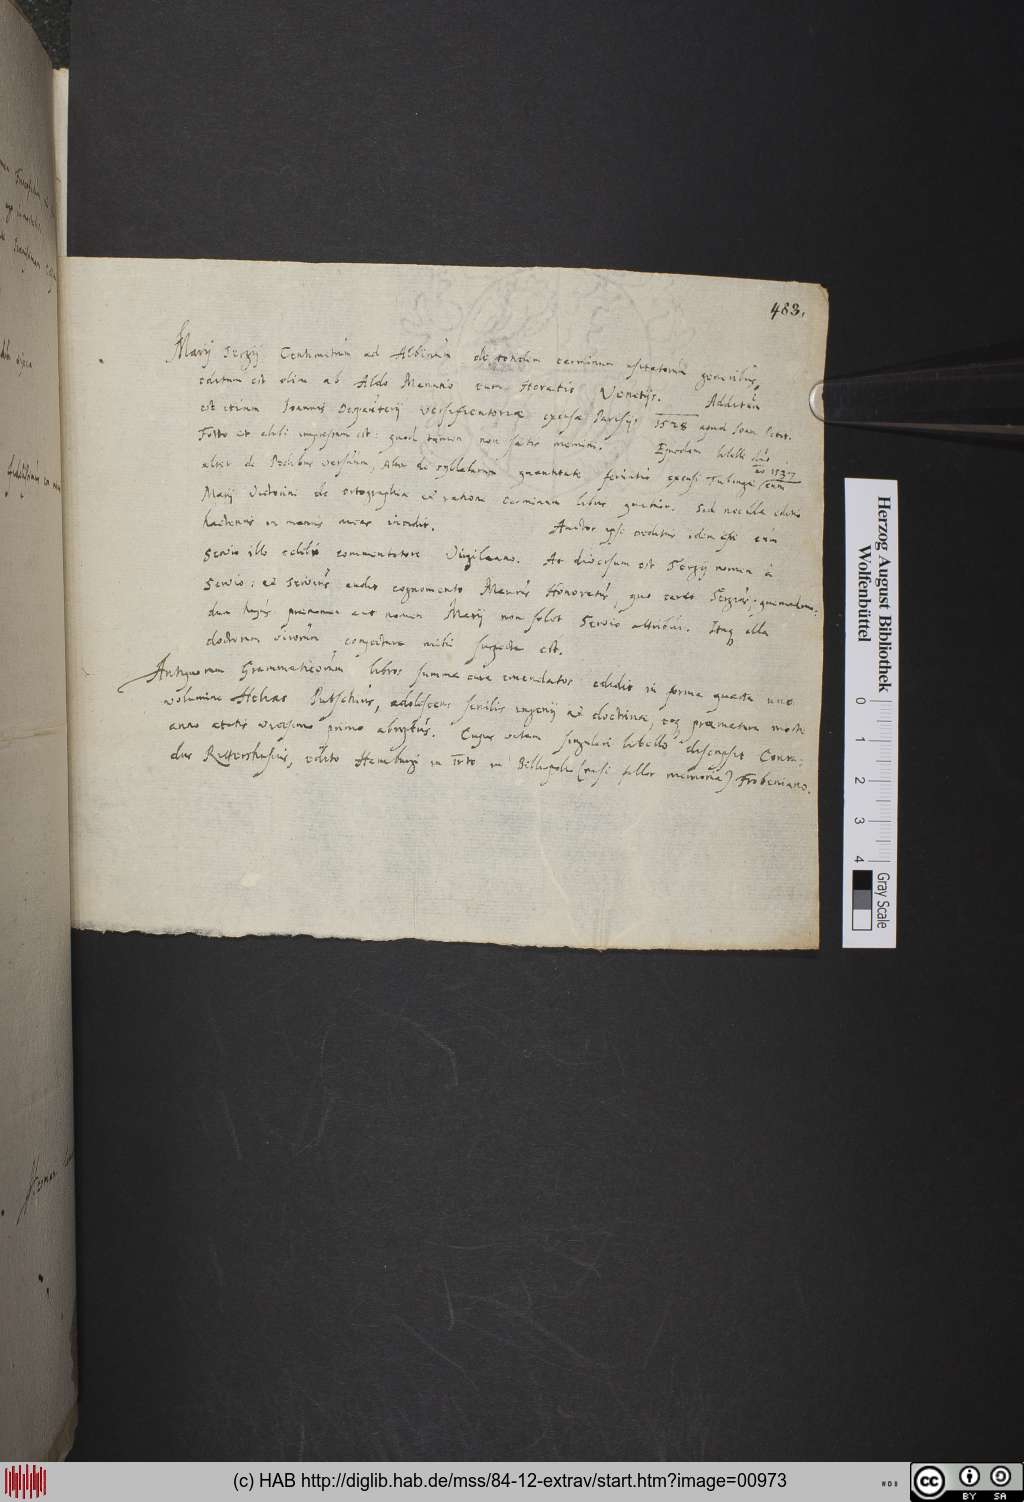 483.
Marij Sergij Centimetrum ad Albinum de tonden carminum usitatorum generibus,
editum est olim ab Aldo Manutio cum Horatio Venetijs. Additum
est etiam Joannis Despauterij Versificatoriae excusae Parisijs 1528 apud Joan. Petit.
Forte et alibi impressum est: quod tamen non satis memini. Ejusdem libelli duo
alter de Pedibus versuum, alter de syllabarum quantitate feruntur excusi Tubingae ao 1537 cum
Marij Victorini de ortographia et ratione carminum libris quatuor. Sed nec illa editio
hactenus in manus meas incidit. Auctor ipsi creditur idem esse cum
Servio illo celebri commentatore Virgiliano. At diversum est Sergij nomen à
Servio: et Servius audit cognomento Maurus Honoratus, quo caret Sergius; quemadmo:
dum hujus praenomen aut nomen Marij non solet Servio attribui. Itaq illa
doctorum virorum conjectura mihi suspecta est.
Antiquorum Grammaticorum libros summa cura emendatos edidit in forma quarta uno
volumine Helias Putschius, adolescens senilis ingenij et doctrinae, eoq praematura morte
anno aetatis vicesimo primo abreptus. Cujus vitam singulari libello descripsit Conra:
dus Rittershusius, edito Hamburgi in 4to in Bibliopolio (nisi fallor memoria) Frobeniano.
Herzog August Bibliothek
Wolfenbüttel
0 1 2 3 4
Gray Scale
(c) HAB http://diglib.hab.de/mss/84-12-extrav/start.htm?image=00973
cc BY SA